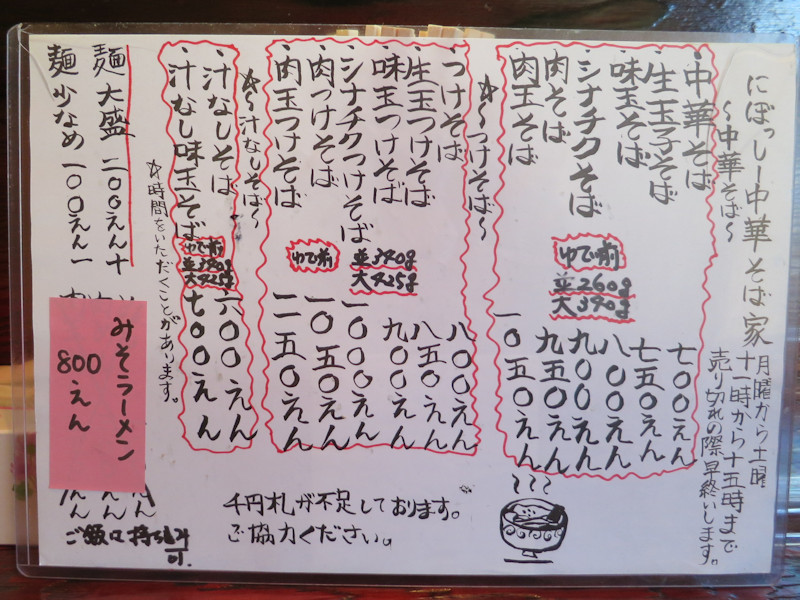 にぼっしー中華そば家
月曜から土曜
十一時から十五時まで
売り切れの際早終いします。
〜中華そば〜
・中華そば 七〇〇えん
・生玉子そば 七五〇えん
・味玉そば 八〇〇えん
・シナチクそば 九〇〇えん
・肉そば 九五〇えん
・肉玉そば 一〇五〇えん
ゆで前
並260g
大390g
☆〜つけそば〜
・つけそば 八〇〇えん
・生玉つけそば 八五〇えん
・味玉つけそば 九〇〇えん
・シナチクつけそば 一〇〇〇えん
・肉つけそば 一〇五〇えん
・肉玉つけそば 一一五〇えん
ゆで前
並390g
大425g
☆〜汁なしそば〜
・汁なしそば 六〇〇えん
・汁なし味玉そば 七〇〇えん
ゆで前
並390g
大425g
☆時間をいただくことがあります。
麺 大盛 二〇〇えん十
麺 少なめ 一〇〇えん一
みそラーメン
800えん
えん
えん
えん
ご飯の持ち込み
可.
千円札が不足しております。
ご協力ください。